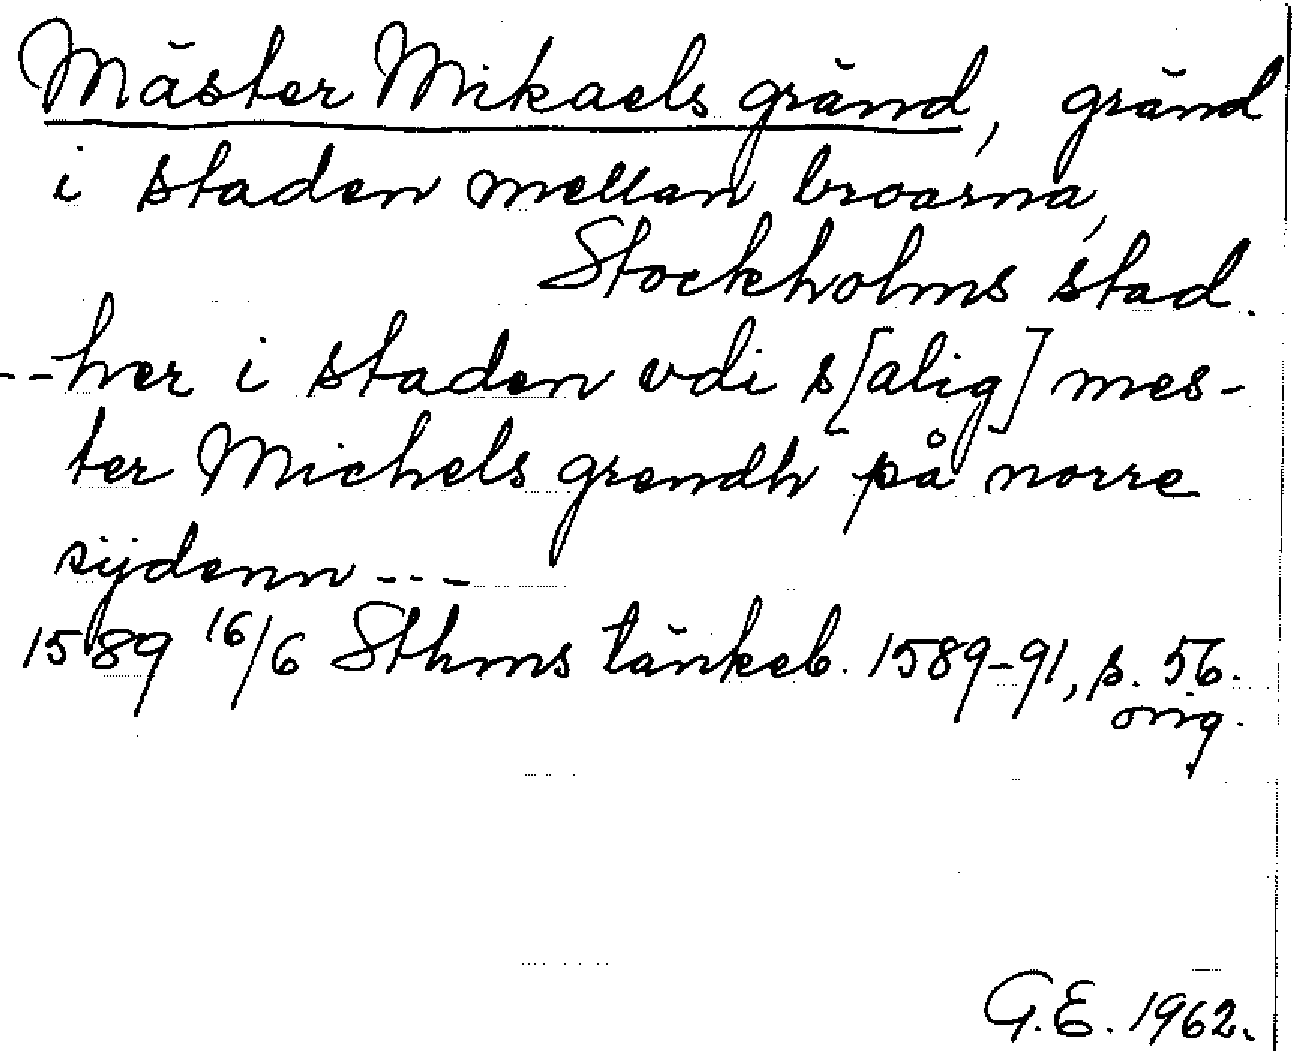 Mäster Mikaels gränd, gränd
i staden mellan broarna,
Stockholms stad.
---her i staden vdi s[alig] mes-
ter Michels grendh på norre
sijdenn ---
1589 16/6 Sthms tänkeb. 1589-91, s. 56.
orig.
G.E. 1962.